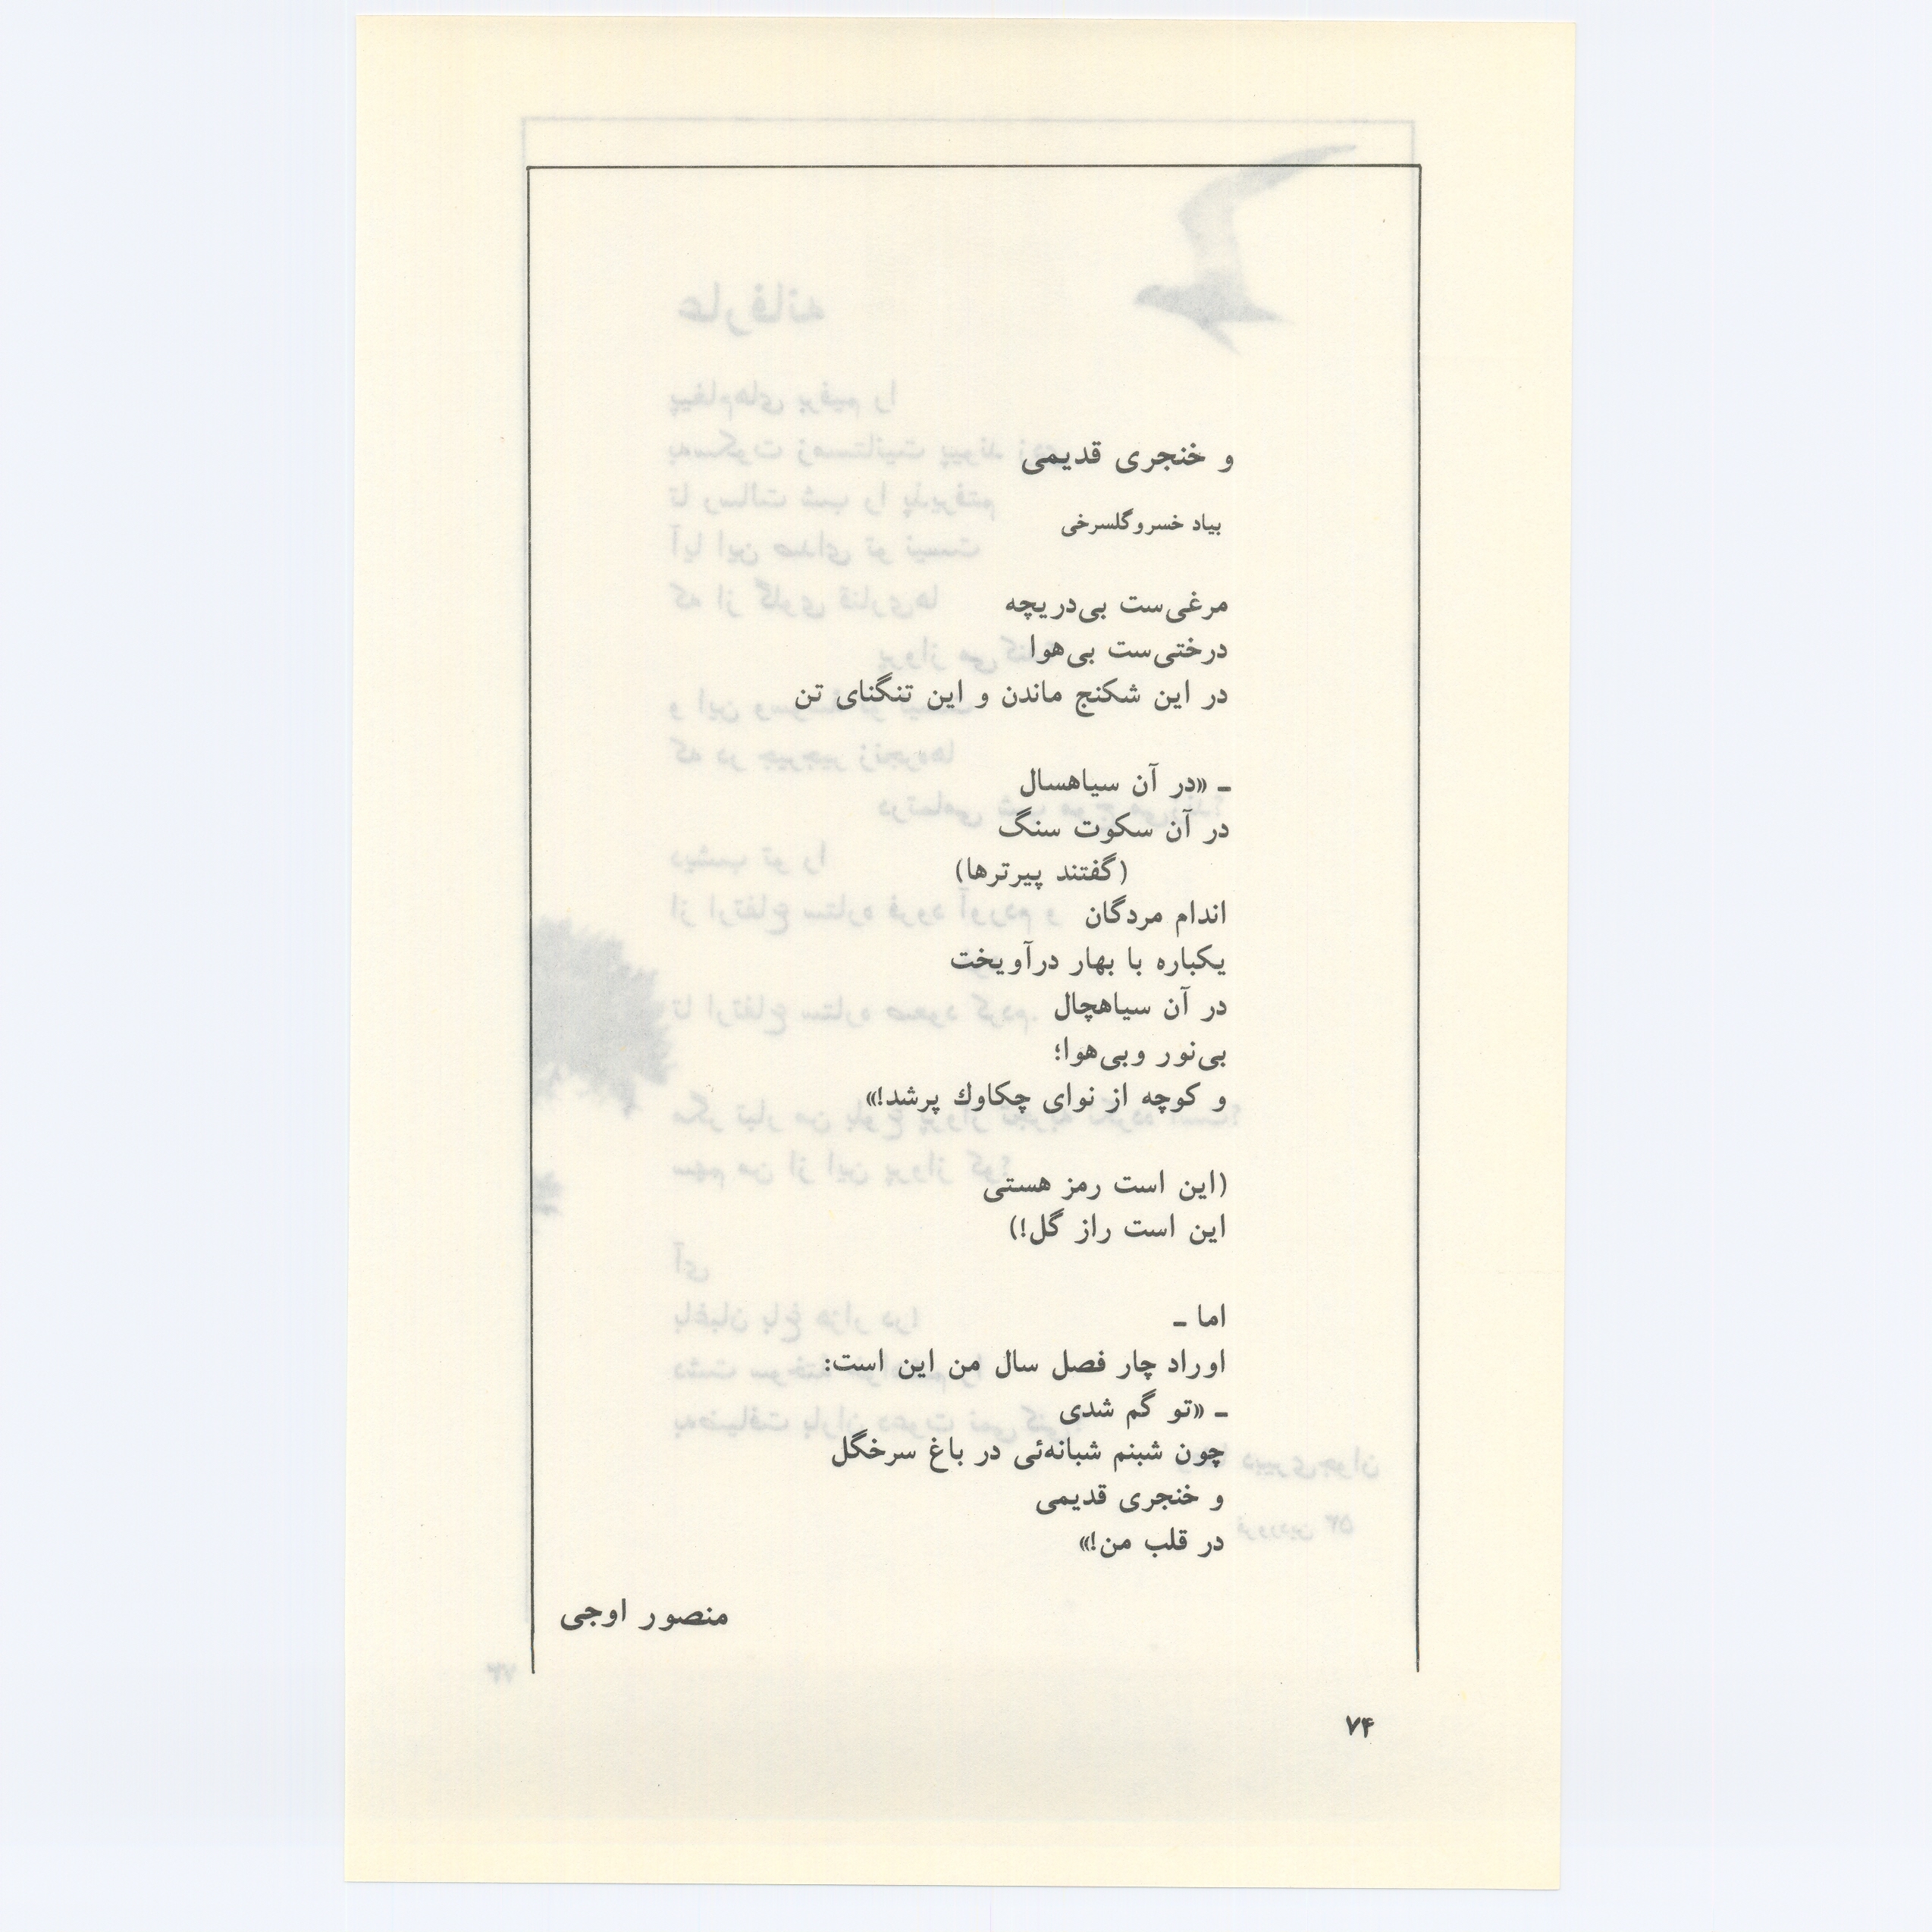 و خنجری قدیمی
بیاد خسروگلسرخی
مرغی‌ست بی‌دریچه
درختی‌ست بی‌هوا
در این شکنج ماندن و این تنگنای تن
ـ «در آن سیاهسال
در آن سکوت سنگ
(گفتند پیرترها)
اندام مردگان
یکباره با بهار درآویخت
در آن سیاهچال
بی‌نور وبی‌هوا؛
و کوچه از نوای چکاوك پرشد!»
(این است رمز هستی
این است راز گل!)
اما ـ
اوراد چار فصل سال من این است:
ـ «تو گم شدی
چون شبنم شبانه‌ئی در باغ سرخگل
و خنجری قدیمی
در قلب من!»
منصور اوجی
۷۴